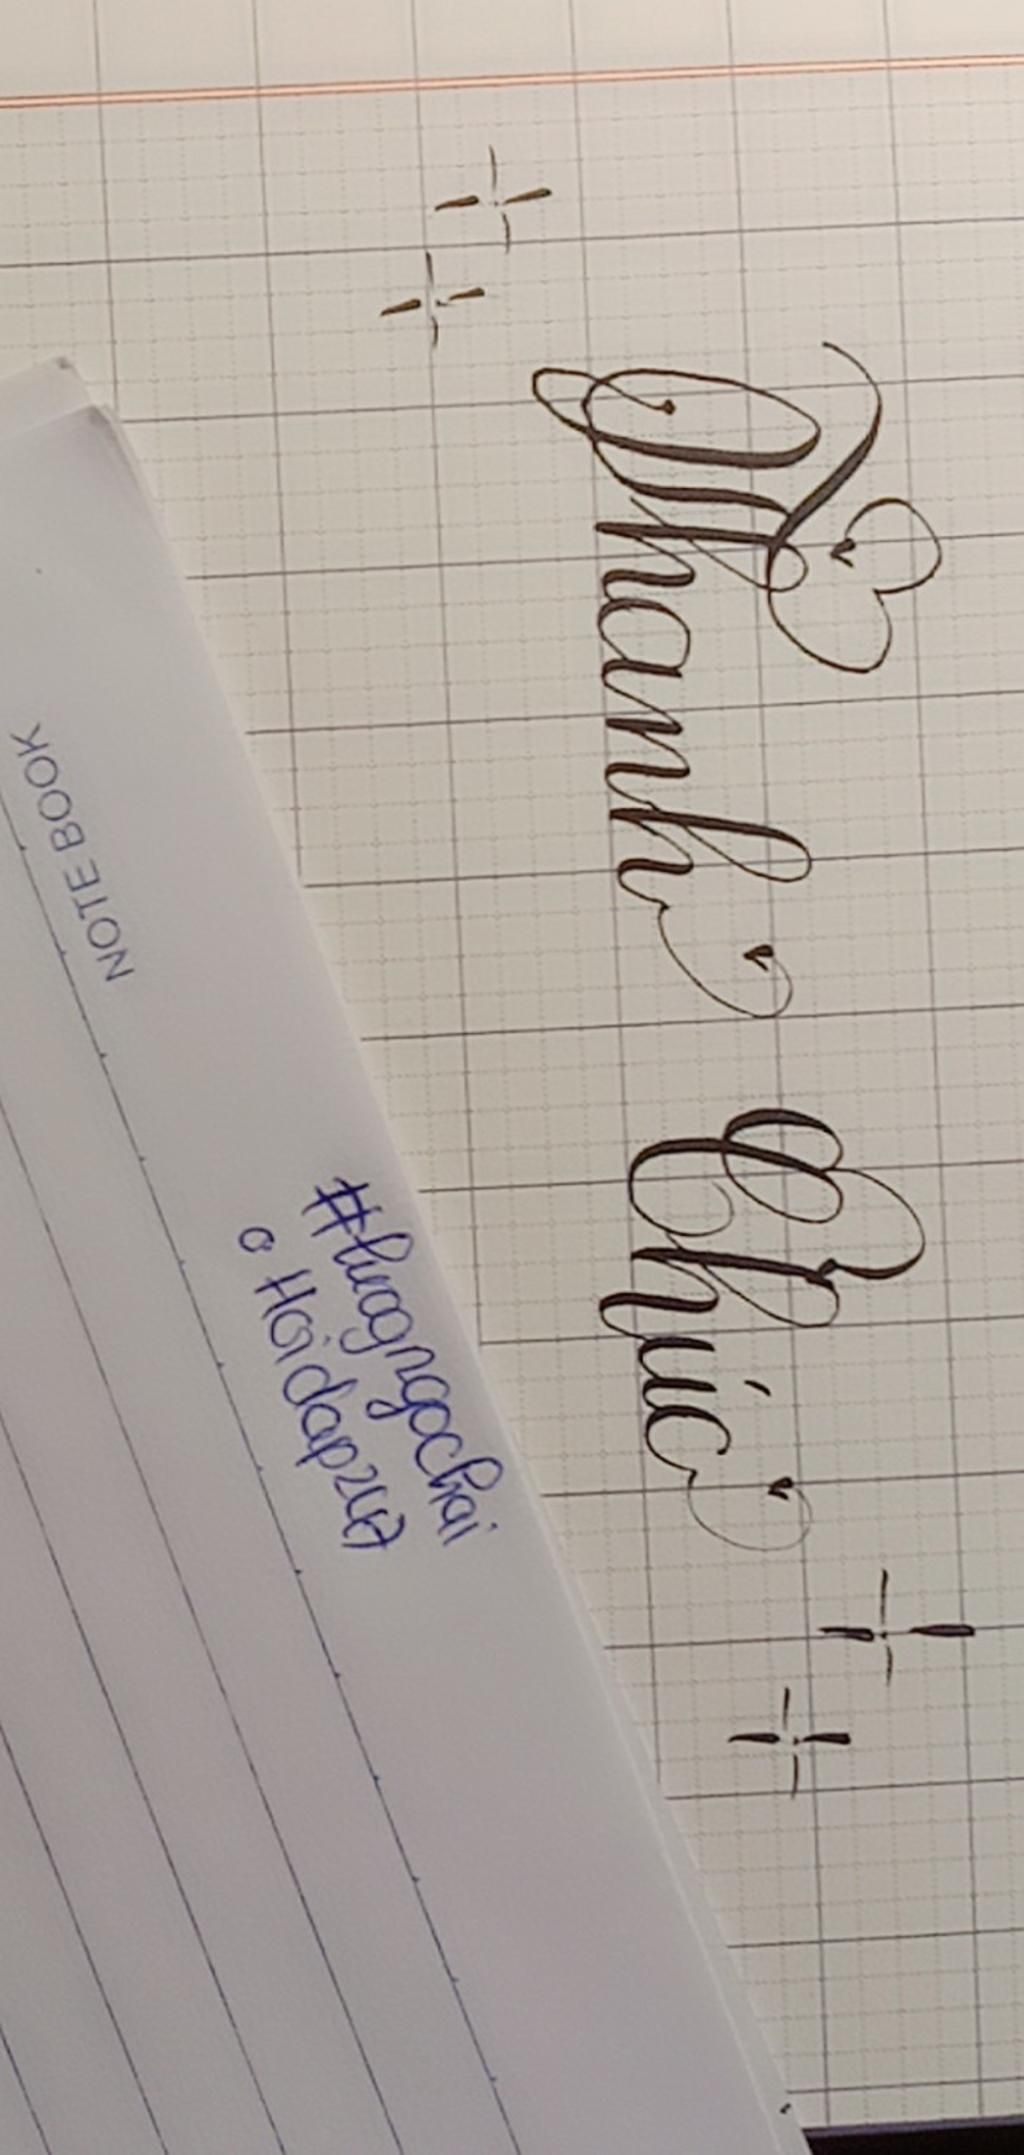 Thanh Chúc
#luagngochai
o Hoidap247
NOTE BOOK